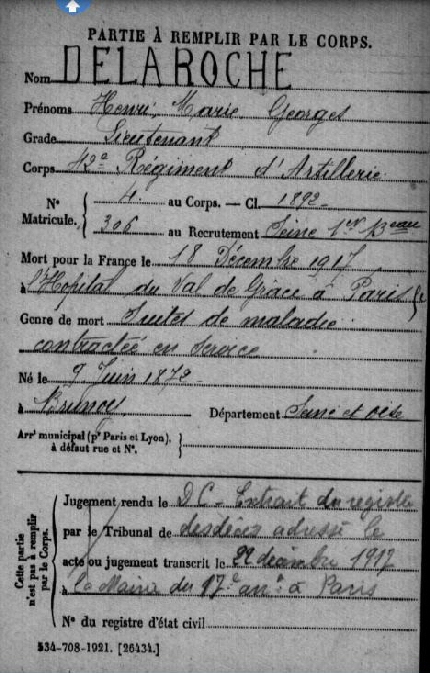 PARTIE À REMPLIR PAR LE CORPS.
Nom DELAROCHE
Prénoms Henri, Marie, Georges
Grade Lieutenant
Corps 42e Régiment d'Artillerie
N° Matricule. { 4. au Corps. — Cl. 1892
306 au Recrutement Seine 1er Beau
Mort pour la France le 18 Décembre 1917
à l'Hôpital du Val de Grâce à Paris
Genre de mort Suites de maladie
contractée en service
Né le 9 Juin 1872
à Département Seine et Oise
Arrt municipal (pr Paris et Lyon), à défaut rue et N°. }
Cette partie n'est pas à remplir par le Corps.
Jugement rendu le D C - Extrait du registre
par le Tribunal de des décès adressé le
acte ou jugement transcrit le 22 décembre 1917
à la Mairie du 17e arrt à Paris
N° du registre d'état civil
534-708-1921. [26434.]